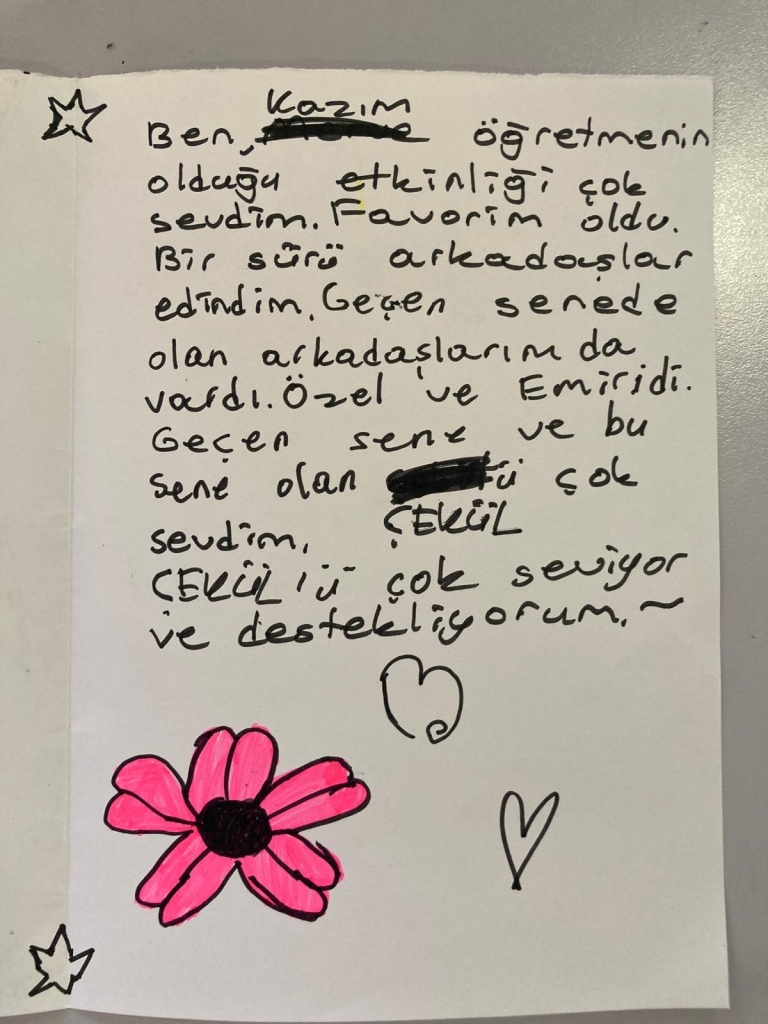 Kazım
Ben, öğretmenin
olduğu etkinliği çok
sevdim. Favorim oldu.
Bir sürü arkadaşlar
edindim. Geçen senede
olan arkadaşlarım da
vardı. Özel ve Emiridi.
Geçen sene ve bu
sene olan çok
sevdim. ÇEKÜL
ÇEKÜL'ü çok seviyor
ve destekliyorum. ~